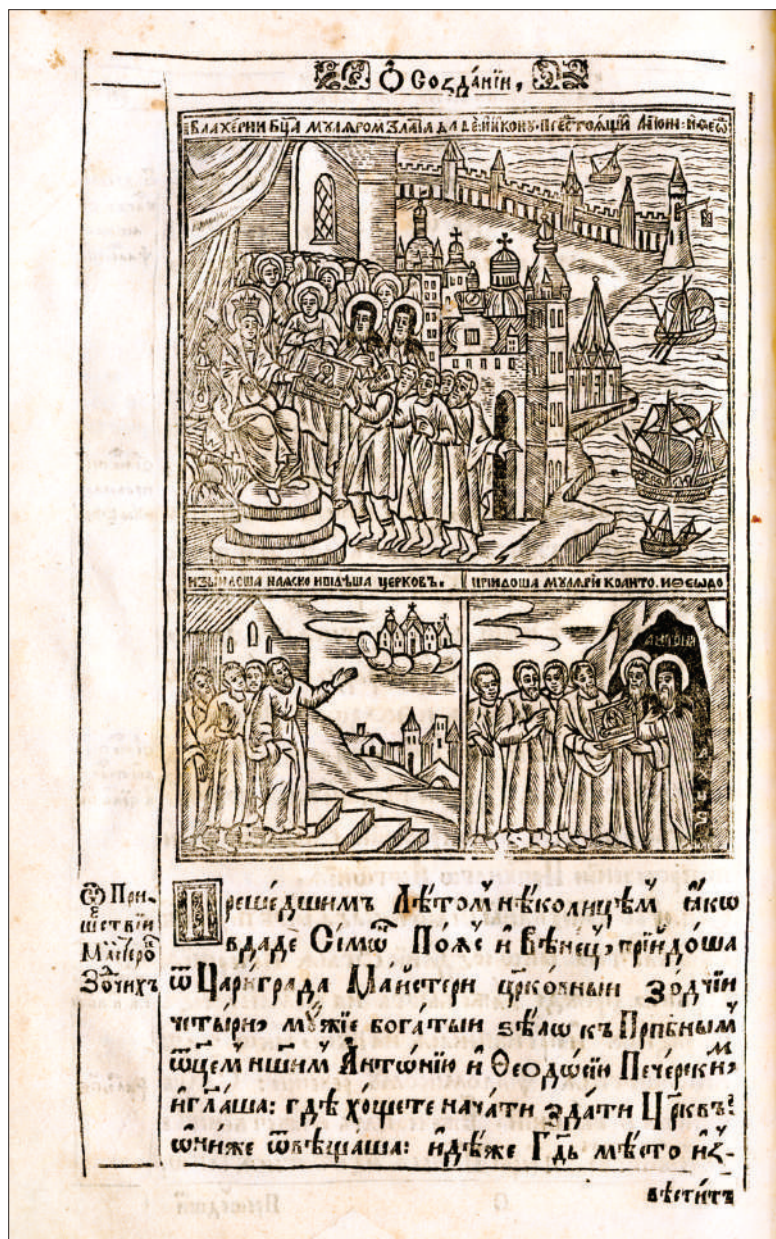 Ѽ Созда́нїи,
ВЛАХЕРНИ БЦА МꙊЛѦРОМ ЗЛАТА ДАДЕ И ИКОНꙊ
ИЗЫЙДОША НАѦСНО И ВІДѢША ЦЕРКОВЪ.
ПРІИДОША МꙊЛѦРІЕ КО АНТО. И ѲЕѠДО
АНТОНІЙ
Ѿ При-
шествїи
Мастеро
Зодчихъ
Преше́дшимъ Лѣ́томъ нѣ́колицѣмъ ꙗ҆́кѡ
вдадѐ Сі́мѡн По́ѧс и҆ Вѣне́ц, прїидо́ша
ѿ Царѧ́града Ма́йстери цр҃ко́вныи зо́дчїи
четы́ри, мꙋ́жїе бога́тыи ѕѣлѡ̀ къ Прпⷣбнымъ
ѿцемъ нш҃имъ А҆нтѡ́нїю и҆ Ѳеодѡ́сїю Пече́рскимъ,
и҆ гл҃аша: гдѣ̀ хо́щете нача́ти зда́ти Цр҃квъ?
ѡ҆ни́же ѿвѣща́ша: и҆дѣ́же Гд҇ь мѣ́сто и҆з-
вѣсти́тъ